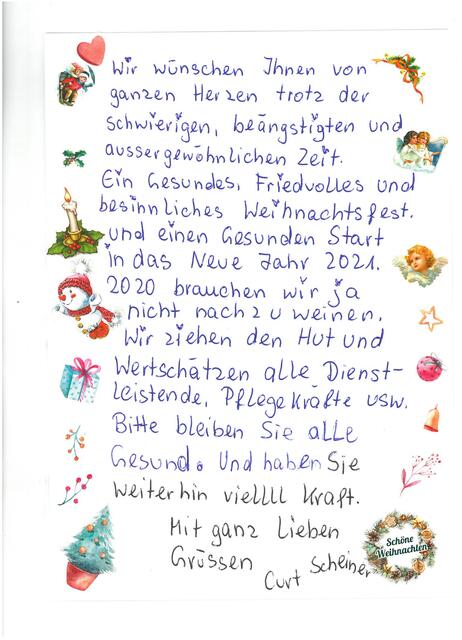 Wir wünschen Ihnen von
ganzen Herzen trotz der
schwierigen, beängstigten und
aussergewöhnlichen Zeit.
Ein Gesundes, Friedvolles und
besinnliches Weihnachtsfest.
und einen Gesunden Start
in das Neue Jahr 2021.
2020 brauchen wir ja
nicht nach zu weinen.
Wir ziehen den Hut und
Wertschätzen alle Dienst-
leistende, Pflegekräfte usw.
Bitte bleiben Sie alle
Gesund. Und haben Sie
weiterhin viellll Kraft.
Mit ganz Lieben
Grüssen
Curt Scheiner
Schöne
Weihnachten